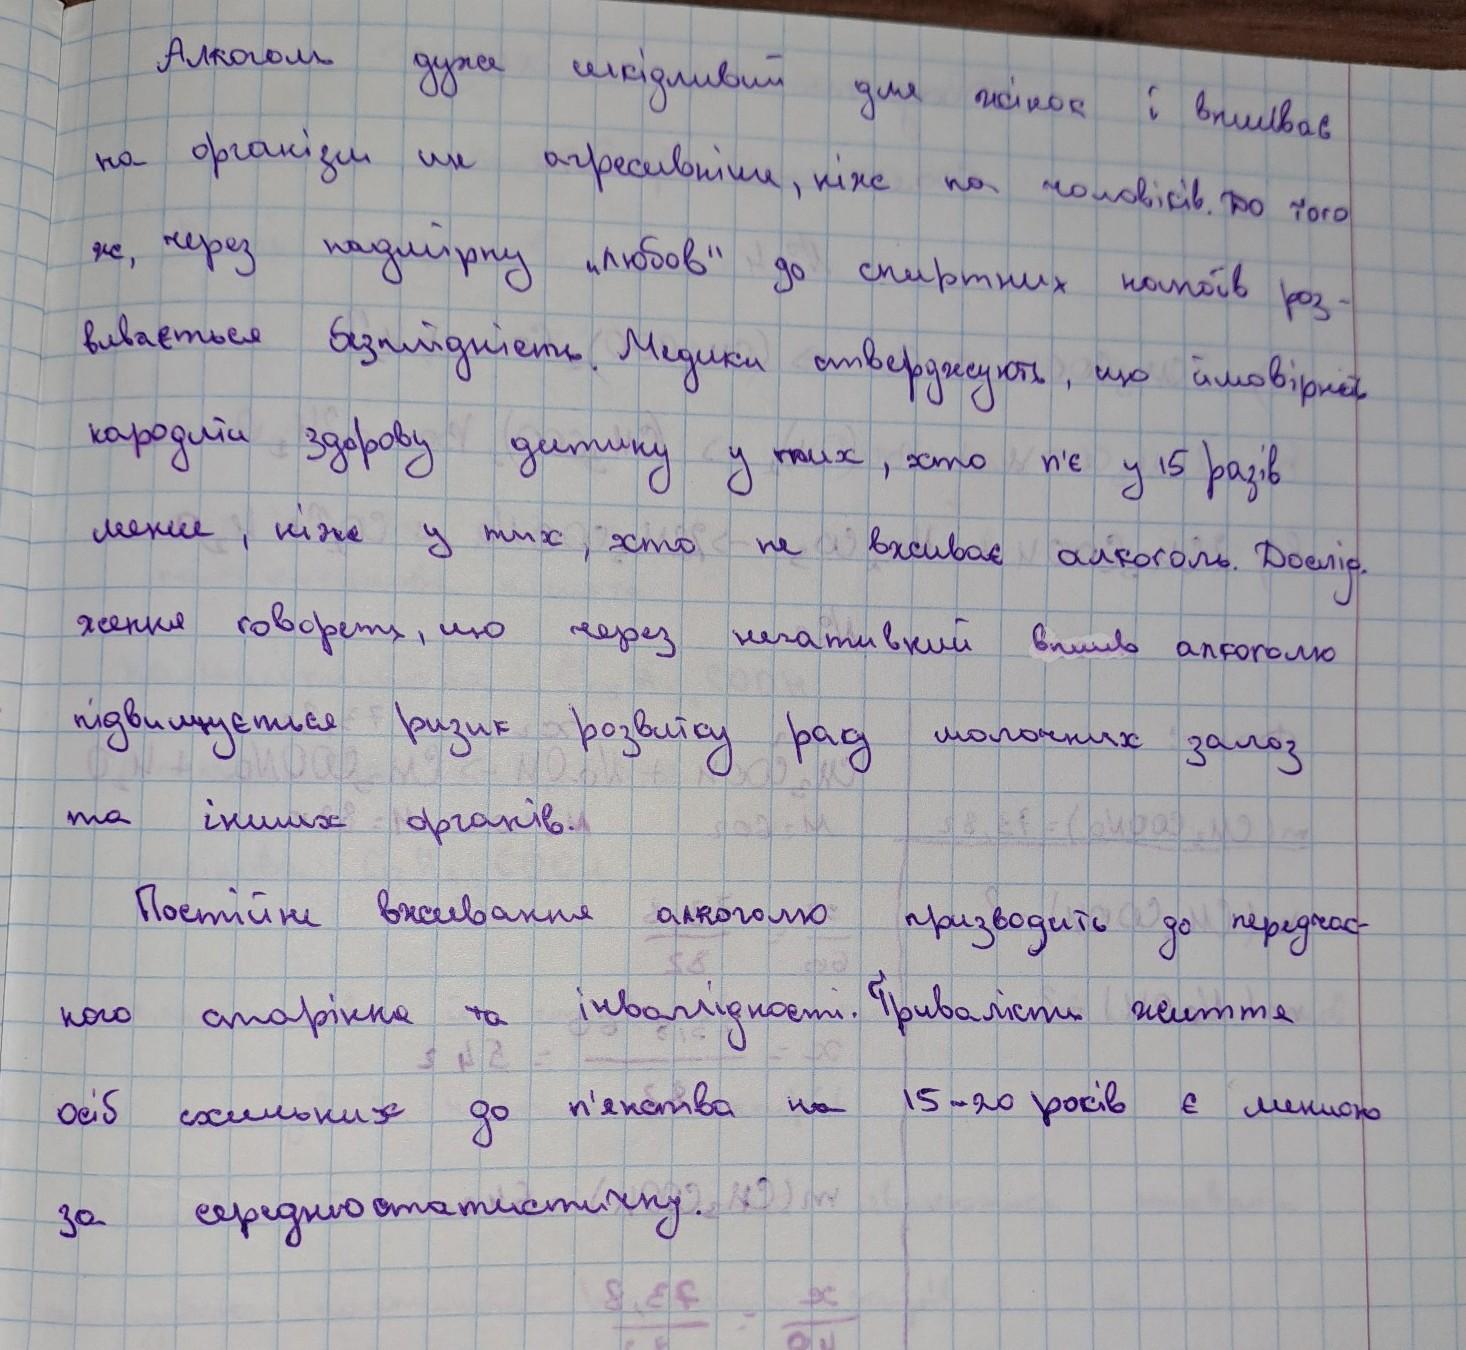 Алкоголь дуже шкідливий для жінок і впливає
на організм ще агресивніше, ніж на чоловіків. До того
ж, через надмірну „любов" до спиртних напоїв роз-
вивається безплідність. Медики стверджують, що ймовірність
народити здорову дитину у тих, хто п'є у 15 разів
менше, ніж у тих, хто не вживає алкоголь. Дослід-
ження говорять, що через негативний вплив алкоголю
підвищується ризик розвитку раку молочних залоз
та інших органів.
Постійне вживання алкоголю призводить до передчас-
ного старіння та інвалідності. Тривалість життя
осіб схильних до п'янства на 15-20 років є меншою
за середньостатистичну.